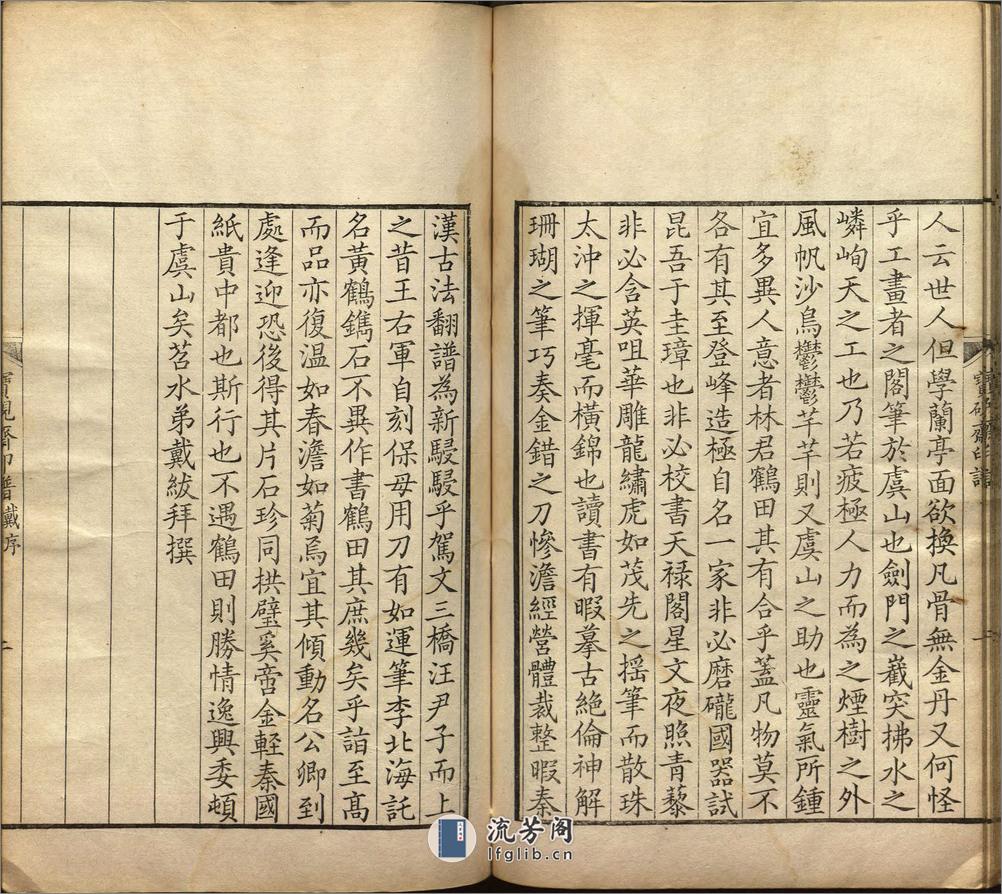 人云世人但學蘭亭面欲換凡骨無金丹又何怪
乎工畫者之閣筆於虞山也劍門之巀突拂水之
嶙峋天之工也乃若疲極人力而為之煙樹之外
風帆沙鳥鬱鬱芊芊則又虞山之助也靈氣所鍾
宜多異人意者林君鶴田其有合乎蓋凡物莫不
各有其至登峰造極自名一家非必磨礲國器試
昆吾于圭璋也非必校書天祿閣星文夜照青藜
非必含英咀華雕龍繡虎如茂先之揺筆而散珠
太沖之揮毫而橫錦也讀書有暇摹古絶倫神解
珊瑚之筆巧奏金錯之刀慘澹經營體裁整暇秦
漢古法翻譜為新駸駸乎駕文三橋汪尹子而上
之昔王右軍自刻保母用刀有如運筆李北海託
名黃鶴鐫石不異作書鶴田其庶幾矣乎詣至高
而品亦復溫如春澹如菊焉宜其傾動名公卿到
處逢迎恐後得其片石珍同拱璧奚啻金輕秦國
紙貴中都也斯行也不遇鶴田則勝情逸興委頓
于虞山矣苕水弟戴紱拜撰
寶硯齋印譜
一
寶硯齋印譜 戴序
二
流芳阁
lfglib.cn